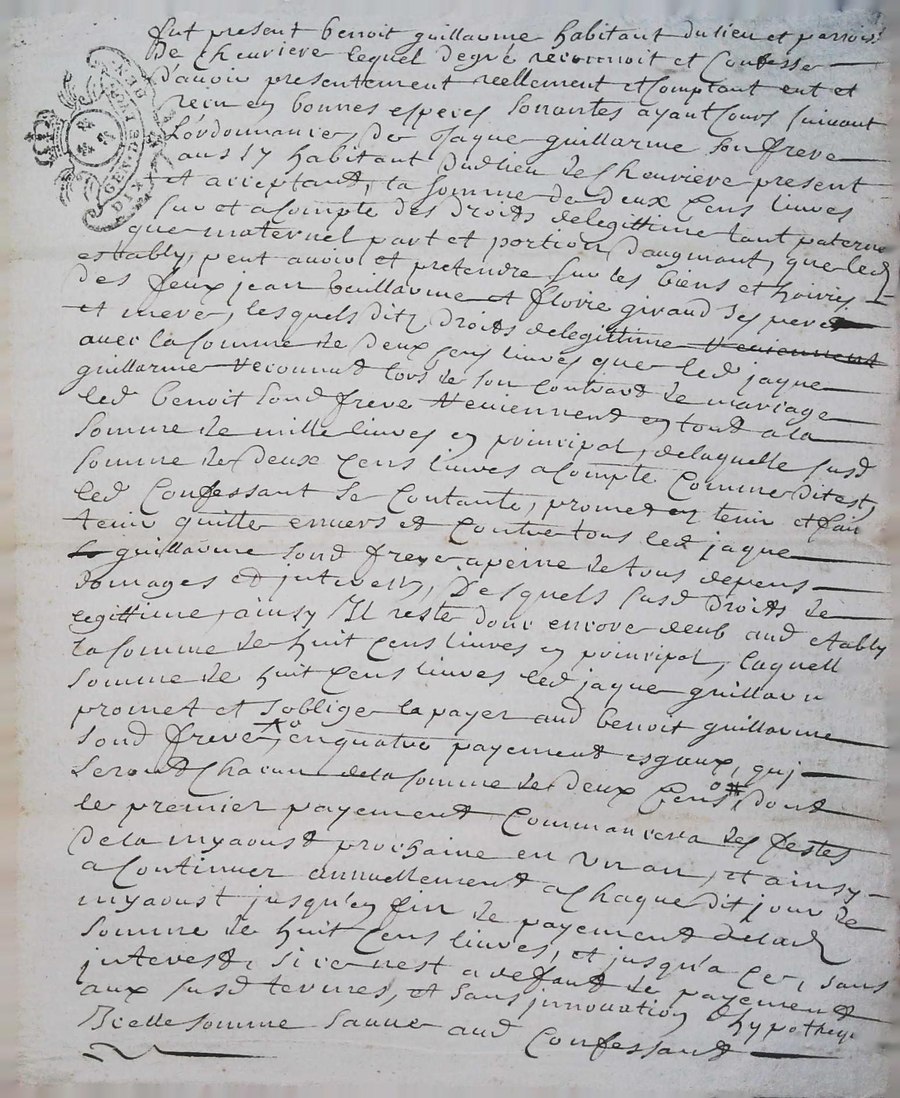 fut present benoit guillaume habitant du lieu et parrois
de cheuriere lequel de gré reconnoit et Confesse
d'auoir presentement reellement et Comptant eut et
receu en bonnes especes sonnantes ayant Cours suiuant
L'ordonnance, de Jaque guillaume son frere
aussy habitant dudlieu de Cheuriere present
et acceptant, la somme de deux Cens liures
sur et a Compte des droits de legittime tant paterne
que maternel part et portion d'augmant, que led
estably, peut auoir et pretendre sur les biens et hoiries
des feux jean guillaume et florie giraud ses pere
et mere, lesquels ditz droits de legittime reuiennent
auec la somme de deux Cens liures que led jaque
guillaume reconnut lors de son Contract de mariage
led benoit sond frere reuiennent en tout a la
somme de mille liures en principal, de laquelle susd
somme de deux Cens liures a Compte Comme dit est,
led Confessant se Contante, promet en tenir et fair
tenir quitte enuers et Contre tous led jaque
guillaume sond frere a peine de tous depens
domages et interests, desquels susd droits de
legittime, ainsy Il reste donc encore deub aud estably
la somme de huit Cens liures en principal, laquell
somme de huit Cens liures led jaque guillaum
promet et s'oblige la payer aud benoit guillaume
sond frere, en quatre payement esgaux, quj
seront Chacun de la somme de deux Cens #, dont
le premier payement Commancera des festes
de la myaoust prochaine en vn an, et ainsy
a Continuer annuellement a Chaque dit jour de
myaoust jusqu'en fin de payement de lad
somme de huit Cens liures, et jusqu'a Ce, sans
interest, si ce n'est a defaut de payement
aux susd termes, et sans jnnouation d'hypotheq
d'icelle somme sauue aud Confessant
GEN DE LYON
DIX DEN